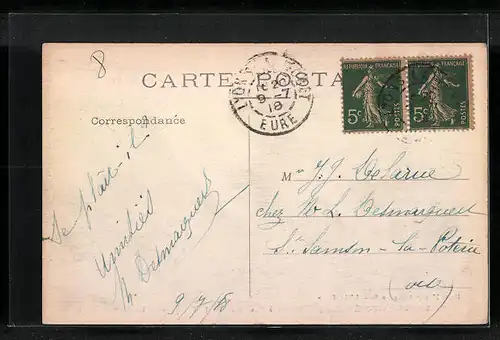 8
CARTE POSTALE
LYONS-LA-FORÊT
20
9-7
18
EURE
REPUBLIQUE FRANÇAISE
5c
REPUBLIQUE FRANÇAISE
5c
Correspondance
Se plaît-il?
Amitiés
M. Desmarquest
9/7/18
M r J. J. Delarue
chez M L. Desmarquest
St Samson-la-Poterie
(Oise)